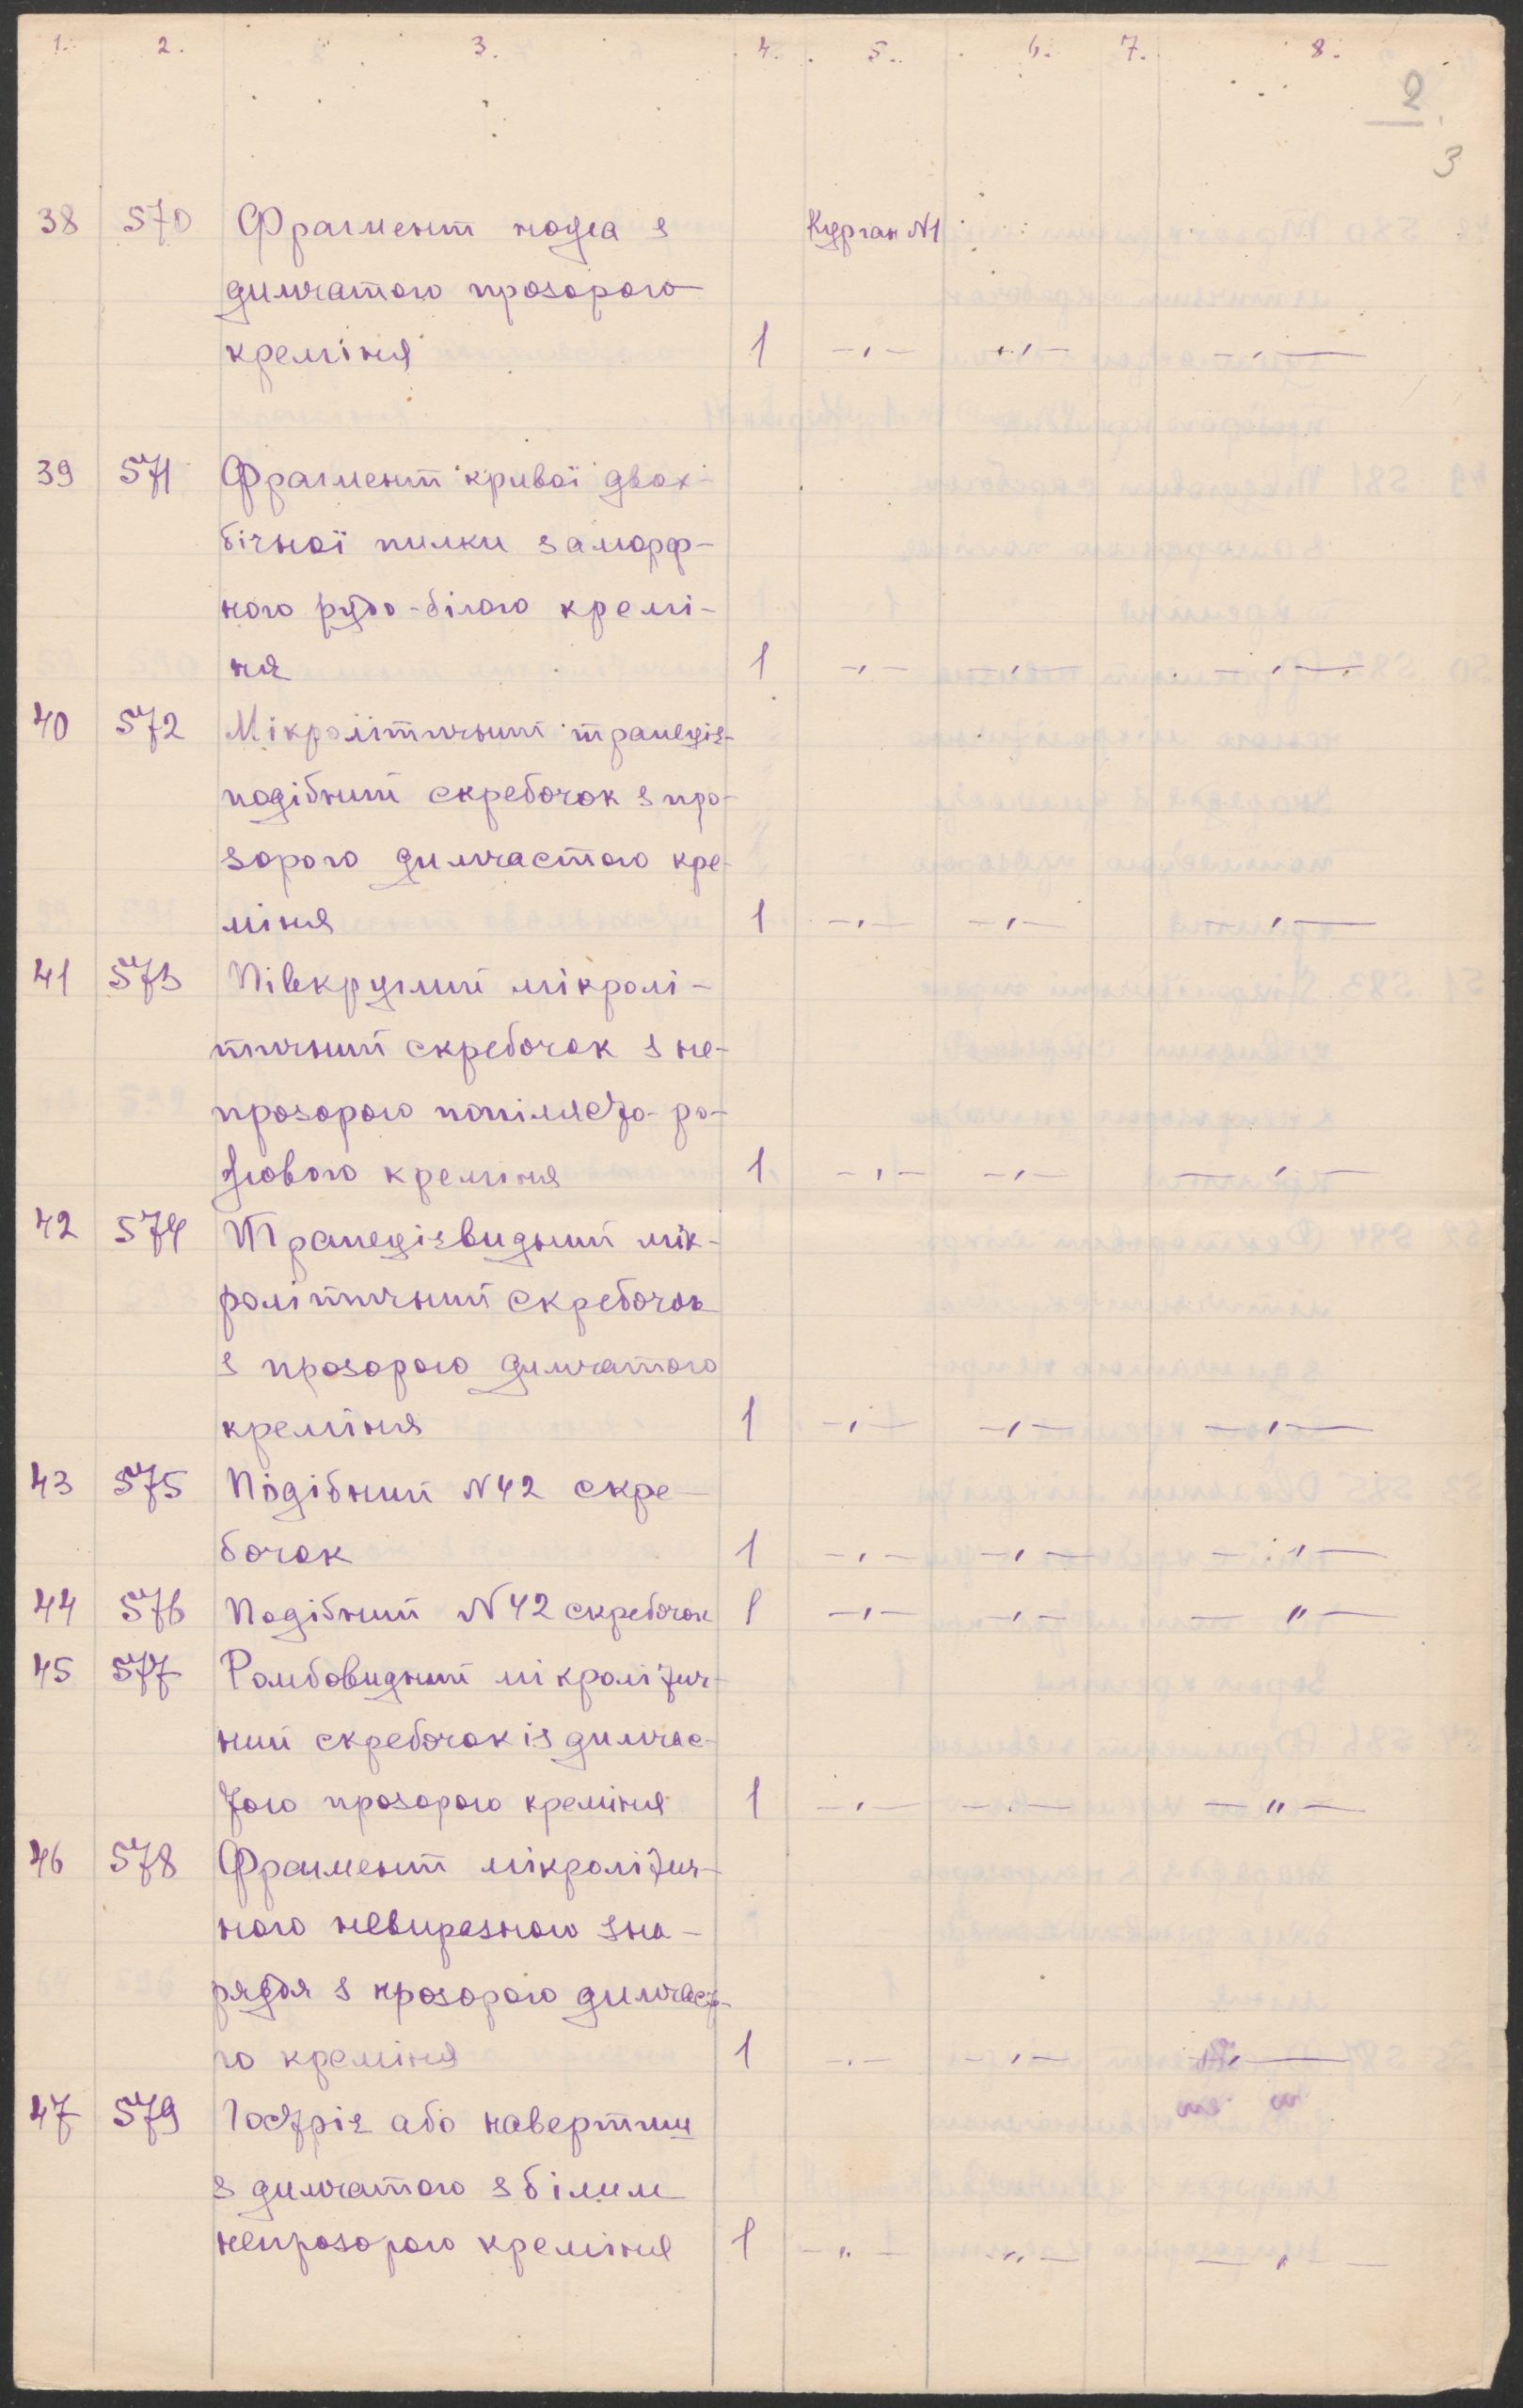 1. 2. 3. 4. 5. 6. 7. 8.
2
3
38 570 Фрагмент ножа з Курган №1
димчатого прозорого
креміня 1 -„- -„- -„-
39 571 Фрагмент кривої двох-
бічної пилки з аморф-
ного рудо-білого кремі-
ня 1 -„- -„- -„-
40 572 Мікролітичний трапеціє-
подібний скребочок з про-
зорого димчастого кре-
міня 1 -„- -„- -„-
41 573 Півкруглий мікролі-
тичний скребочок з не-
прозорого попілясто-ро-
жового креміня 1 -„- -„- -„-
42 574 Трапецієвидний мік-
ролітичний скребочок
з прозорого димчатого
креміня 1 -„- -„- -„-
43 575 Подібний №42 скре-
бочок 1 -„- -„- -„-
44 576 Подібний №42 скребочок 1 -„- -„- -„-
45 577 Ромбовидний мікролітич-
ний скребочок із димчас-
того прозорого креміня 1 -„- -„- -„-
46 578 Фрагмент мікролітич-
ного невиразного зна-
ряддя з прозорого димчасто-
го креміня 1 -„- -„- -„-
47 579 Гостріє або навертиш
з димчатого з білим
непрозорого креміня 1 -„- -„- -„-